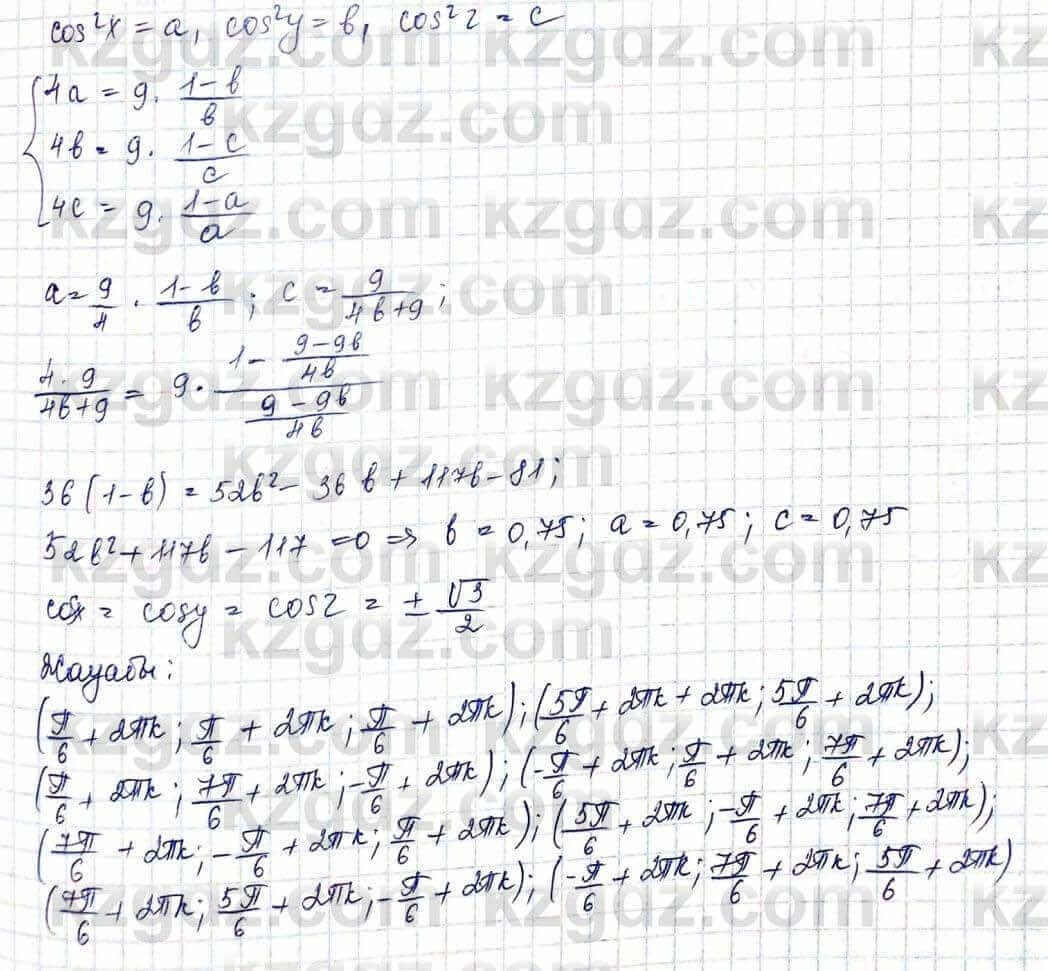 cos²x = a, cos²y = b, cos²z = c
{ 4a = 9 · (1-b)/b
4b = 9 · (1-c)/c
4c = 9 · (1-a)/a
a = 9/4 · (1-b)/b ; c = 9/(4b+9) ;
(4·9)/(4b+9) = 9 · (1 - (9-9b)/4b)/((9-9b)/4b)
36(1-b) = 52b² - 36b + 117b - 81;
52b² + 117b - 117 = 0 => b = 0,75; a = 0,75; c = 0,75
cosx = cosy = cosz = ± √3/2
Жауабы:
(π/6 + 2πk; π/6 + 2πk; π/6 + 2πk); (5π/6 + 2πk + 2πk; 5π/6 + 2πk);
(π/6 + 2πk; 7π/6 + 2πk; -π/6 + 2πk); (-π/6 + 2πk; π/6 + 2πk; 7π/6 + 2πk);
(7π/6 + 2πk; -π/6 + 2πk; π/6 + 2πk); (5π/6 + 2πk; -π/6 + 2πk; 7π/6 + 2πk);
(7π/6 + 2πk; 5π/6 + 2πk; -π/6 + 2πk); (-π/6 + 2πk; 7π/6 + 2πk; 5π/6 + 2πk)
kzgdz.com